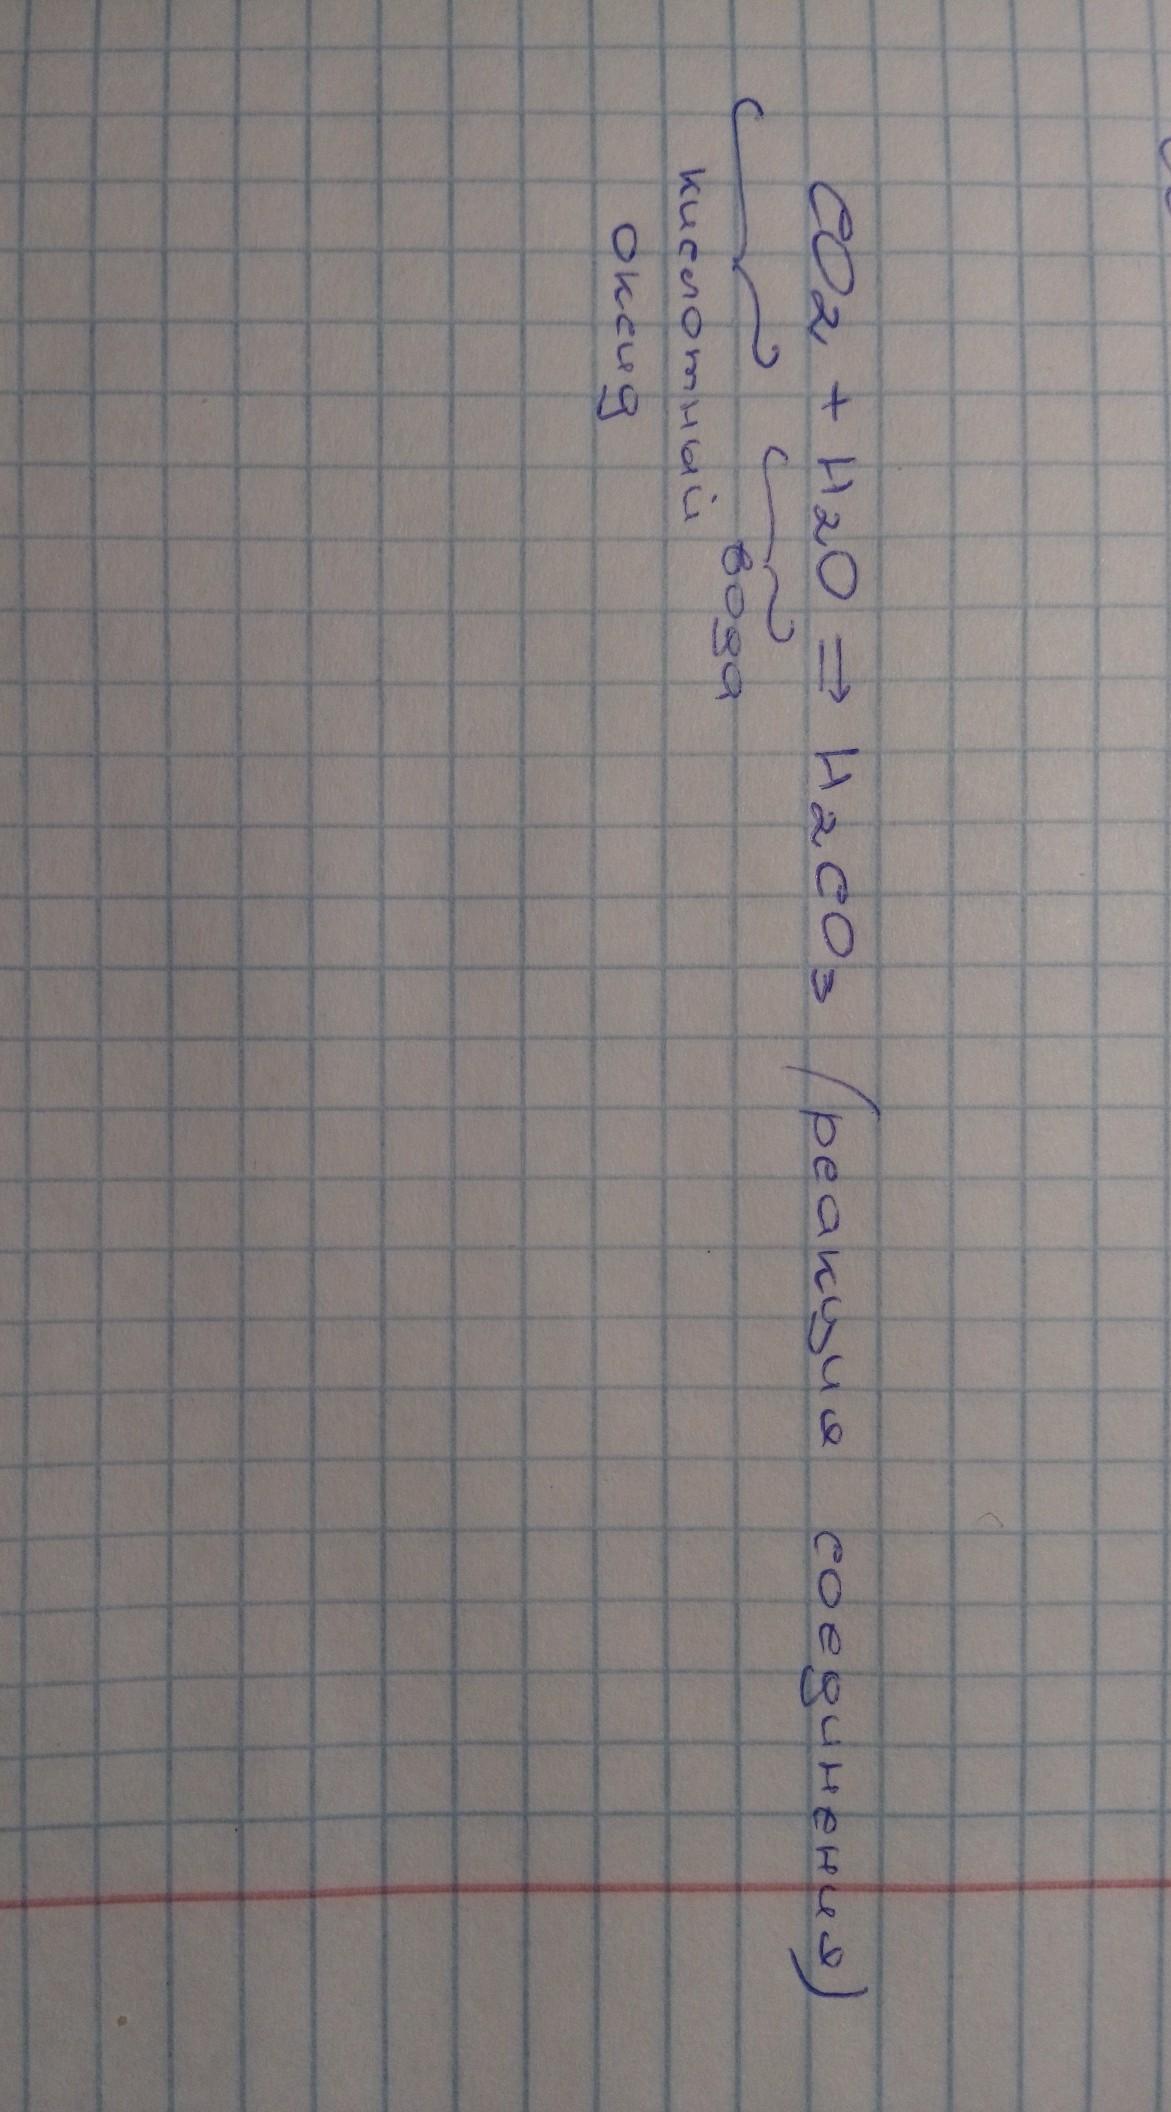 CO2 + H2O => H2CO3 (реакция соединения)
вода
кислотный
оксид